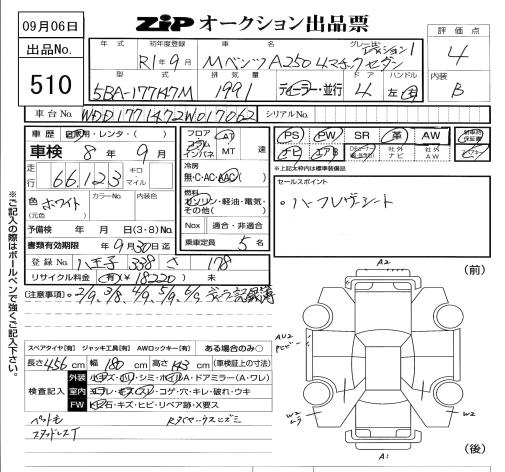 09月06日
ZIP オークション出品票
出品No.
510
年式 初年度登録 車名 グレード エディション1 評価点
R1年9月 Mベンツ A250 4マチック セダン 4
型式 排気量 ドア ハンドル 内装
5BA-177147M 1991 ディーラー・並行 4 左・右 B
車台No. WDD1771472W017062 シリアルNo.
車歴 自家用・レンタ・( )
フロア コラム インパネ AT MT 速
PS PW SR 革 AW 新車時保証書
車検 8年 9月
冷房 無・C・AC・AAC( )
ナビ 社外ナビ 社外AW
※上記太枠内は標準装備品
走行 66,123 キロ マイル
燃料 ガソリン・軽油・電気・その他( )
セールスポイント
ハーフレザーシート
色(元色) ホワイト カラーNo. 内装色
予備検 年 月 日(3・8)No.
Nox 適合・非適合
書類有効期限 9月30日迄
乗車定員 5名
登録No. 八王子 338 さ 178
リサイクル料金 有(¥18220) 未
(注意事項) 2/9、3/8、4/9、5/9、6/9 ディーラー記録簿
※ご記入の際はボールペンで強くご記入下さい。
(前)
A2
AU2
スペアタイヤ[有] ジャッキ工具[有] AWロックキー[有] ある場合のみ○
長さ456cm 幅180cm 高さ143cm (車検証上の寸法)
検査記入
外装 小キズ・小ヘコ・シミ・ホイルA・ドアミラー(A・ワレ)
室内 ヨゴレ・キズ・スレ・コゲ・穴・キレ・破れ・ウキ
FW 飛石・キズ・ヒビ・リペア跡・X要ス
W2
W2
A1
(後)
ペット毛
スタッドレスT